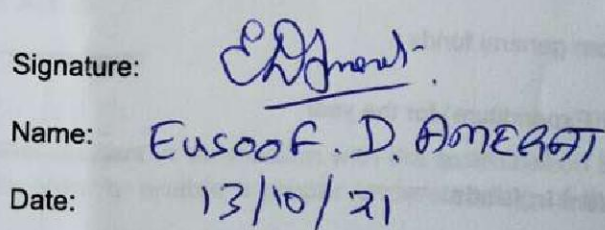 Signature: EDAmerat.
Name: EUSOOF. D. AMERAT
Date: 13/10/21